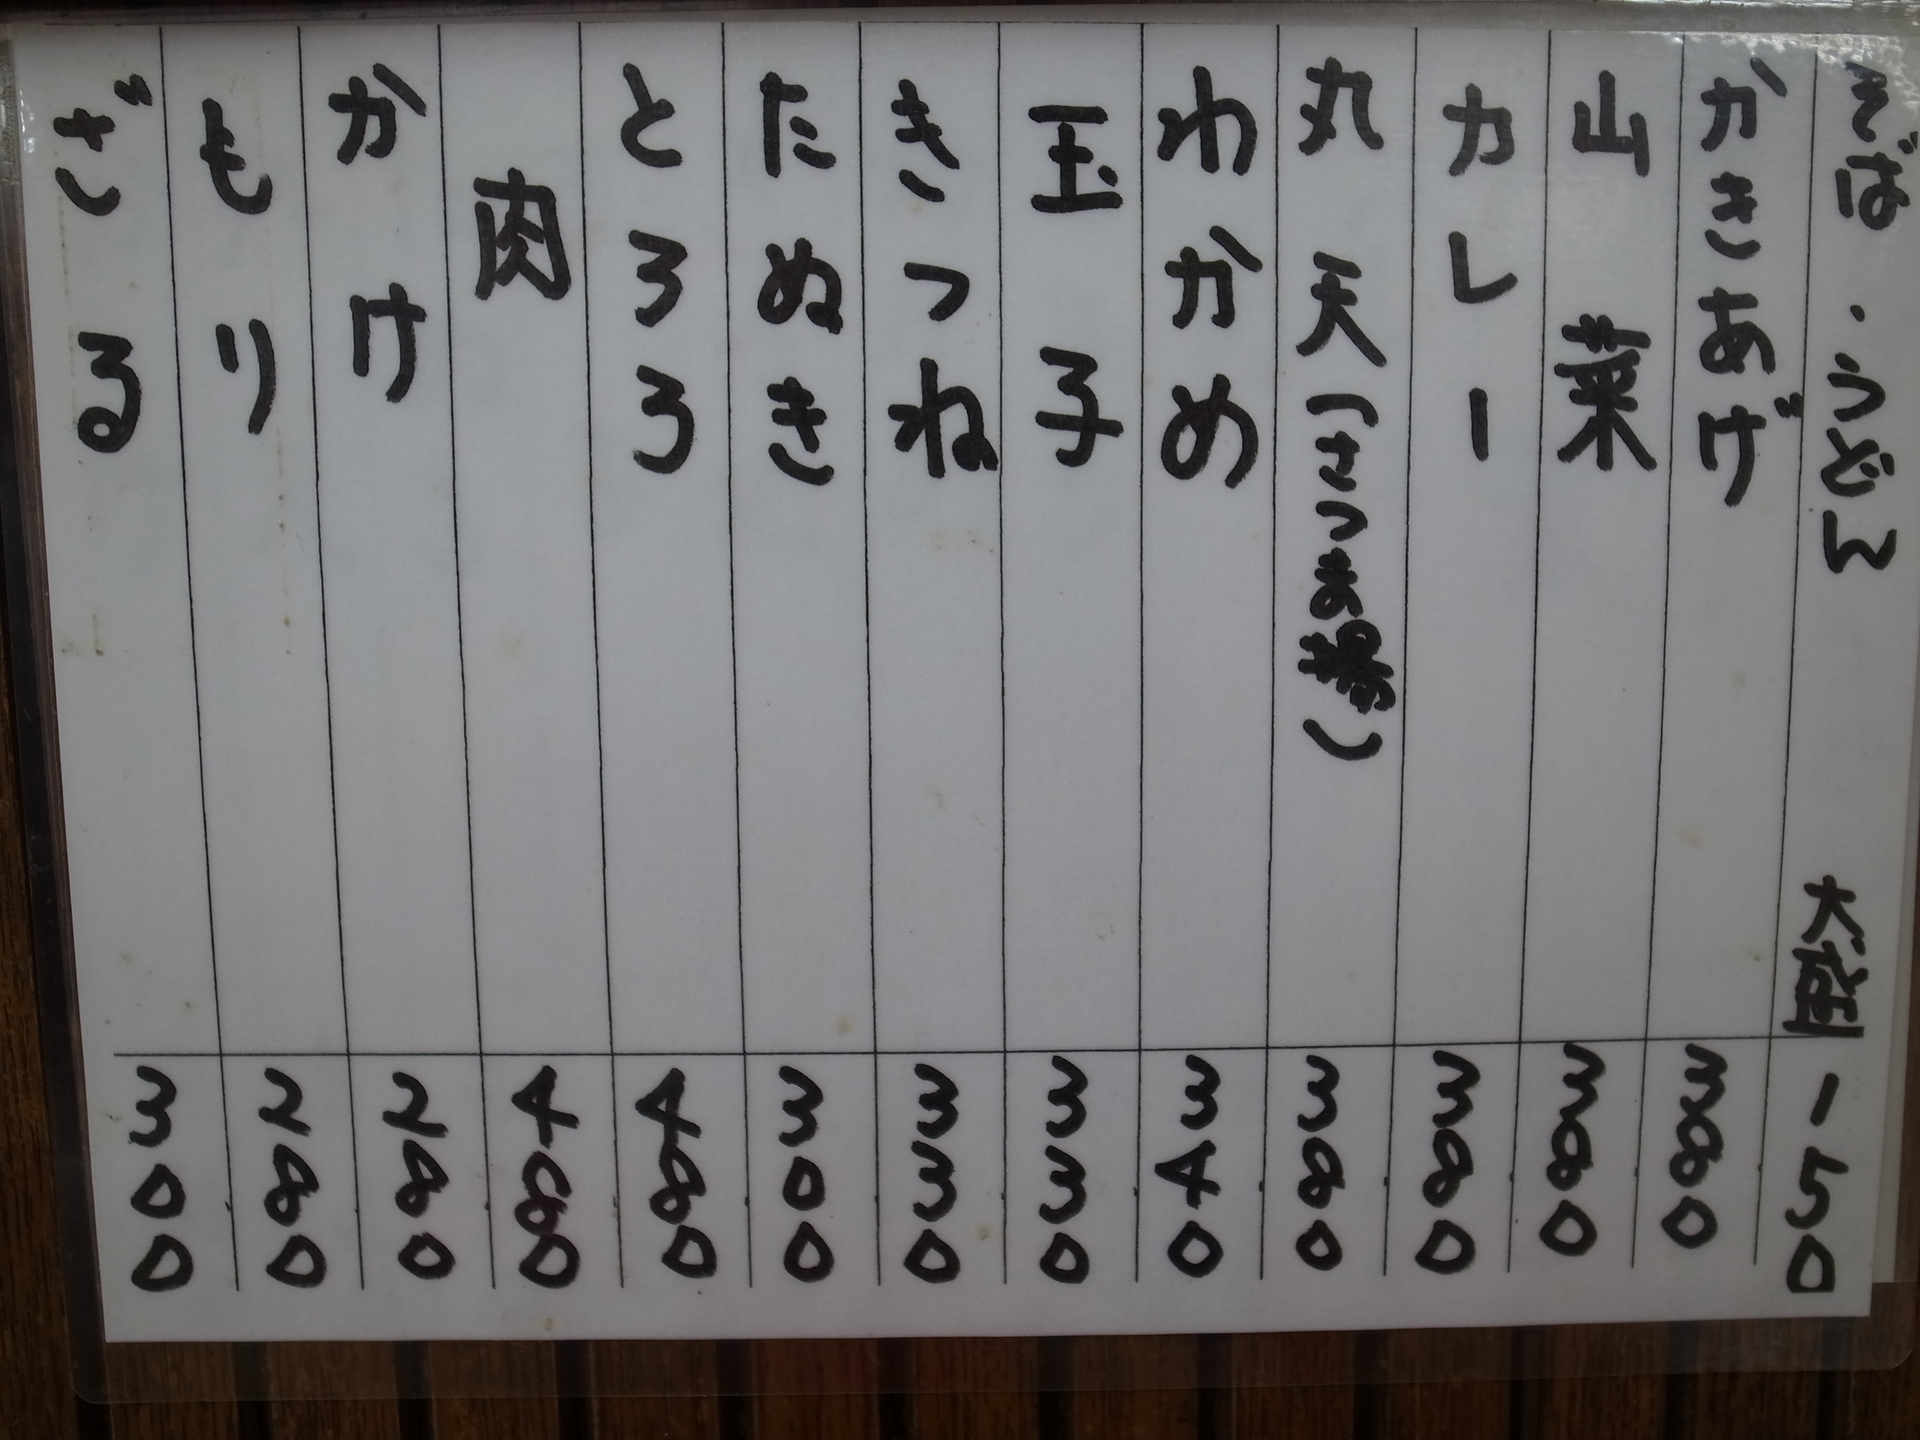 そば・うどん 大盛 150
かきあげ 380
山菜 380
カレー 380
丸天(さつま揚) 380
わかめ 340
玉子 330
きつね 330
たぬき 300
とろろ 480
肉 480
かけ 280
もり 280
ざる 300